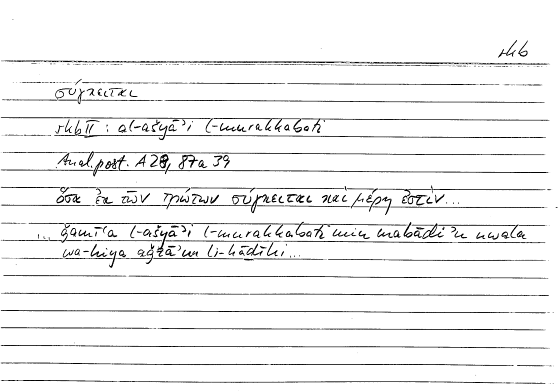 rkb
σύγκειται
rkb II : al-ašyāʾi l-murakkabati
Anal. post. A 28, 87a 39
ὅσα ἐκ τῶν πρώτων σύγκειται καὶ μέρη ἐστίν...
... ǧamīʿa l-ašyāʾi l-murakkabati min mabādiʾa uwala
wa-hiya aǧzāʾun li-hāḏihi...